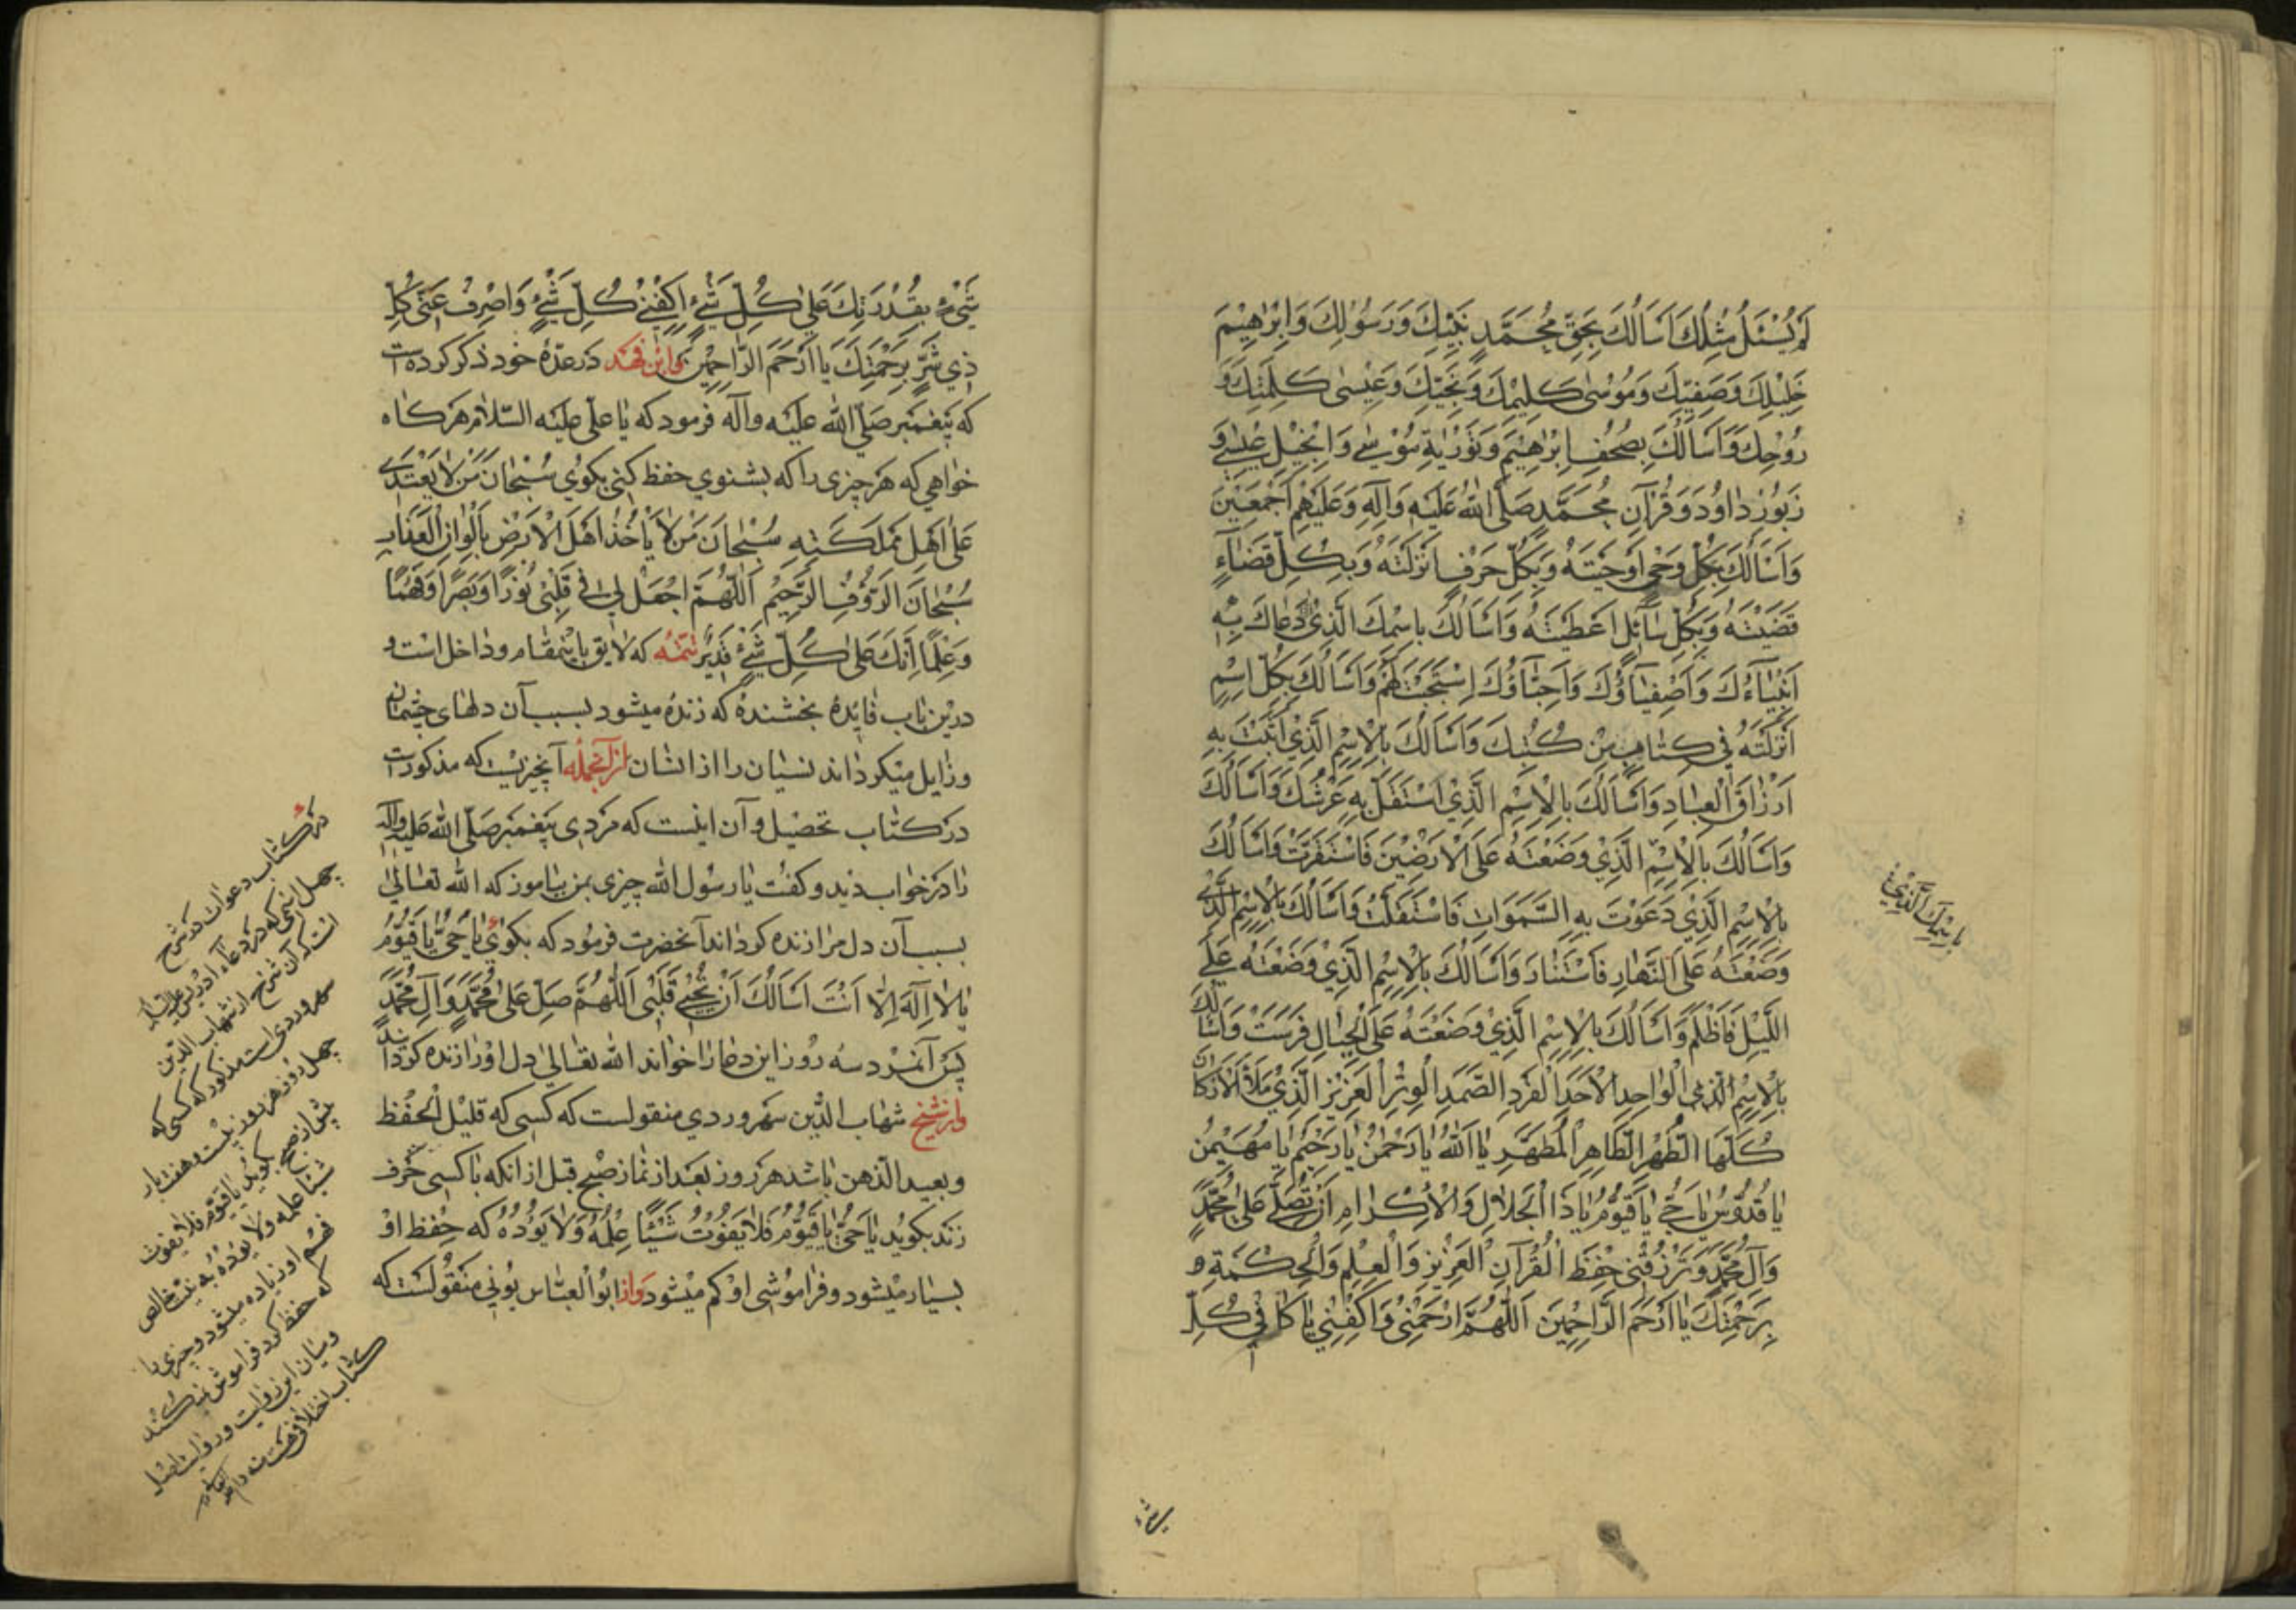 لَمْ يُسْئَلْ مِثْلُكَ اَسَالُكَ بِحَقِّ مُحَمَّدٍ نَبِيِّكَ وَرَسُوْلِكَ وَاِبْرٰهِيْمَ
خَلِيْلِكَ وَصَفِيِّكَ وَمُوْسٰى كَلِيْمِكَ وَنَجِيِّكَ وَعِيْسٰى كَلِمَتِكَ وَ
رُوْحِكَ وَاَسَالُكَ بِصُحُفِ اِبْرٰهِيْمَ وَتَوْرٰيةِ مُوْسٰى وَاِنْجِيْلِ عِيْسٰى وَ
زَبُوْرِ دٰاوُدَ وَقُرْآنِ مُحَمَّدٍ صَلَّى اللهُ عَلَيْهِ وَاٰلِهِ وَعَلَيْهِمْ اَجْمَعِيْنَ
وَاَسَالُكَ بِكُلِّ وَحْىٍ اَوْحَيْتَهُ وَبِكُلِّ حَرْفٍ اَنْزَلْتَهُ وَبِكُلِّ قَضٰآءٍ
قَضَيْتَهُ وَبِكُلِّ سٰآئِلٍ اَعْطَيْتَهُ وَاَسَالُكَ بِاسْمِكَ الَّذِىْ دَعٰاكَ بِهِ
اَنْبِيٰآءُكَ وَاَصْفِيٰآؤُكَ وَاَحِبّٰآؤُكَ اِسْتَجَبْتَ لَهُمْ وَاَسَالُكَ بِكُلِّ اِسْمٍ
اَنْزَلْتَهُ فِي كِتٰابٍ مِنْ كُتُبِكَ وَاَسَالُكَ بِالْاِسْمِ الَّذِيْ اَثْبَتَّ بِهِ
اَرْزٰاقَ الْعِبٰادِ وَاَسَالُكَ بِالْاِسْمِ الَّذِيْ اسْتَقَلَّ بِهِ عَرْشُكَ وَاَسَالُكَ
وَاَسَالُكَ بِالْاِسْمِ الَّذِيْ وَضَعْتَهُ عَلَى الْاَرَضِيْنَ فَاسْتَقَرَّتْ وَاَسَالُكَ
بِالْاِسْمِ الَّذِيْ دَعَوْتَ بِهِ السَّمَوٰاتِ فَاسْتَقَلَّتْ وَاَسَالُكَ بِالْاِسْمِ الَّذِى
وَضَعْتَهُ عَلَى النَّهٰارِ فَاسْتَنٰارَ وَاَسَالُكَ بِالْاِسْمِ الَّذِيْ وَضَعْتَهُ عَلَى
اللَّيْلِ فَاَظْلَمَ وَاَسَالُكَ بِالْاِسْمِ الَّذِيْ وَضَعْتَهُ عَلَى الْجِبٰالِ فَرَسَتْ وَاَسَالُكَ
بِالْاِسْمِ الَّذِى الْوٰاحِدِ الْاَحَدِ الْفَرْدِ الصَّمَدِ الْوِتْرِ الْعَزِيْزِ الَّذِيْ مَلَأَ الْاَرْكٰانَ
كُلَّهَا الطُّهْرِ الطّٰاهِرِ الْمُطَهَّرِ يٰا اَللهُ يٰا رَحْمٰنُ يٰا رَحِيْمُ يٰا مُهَيْمِنُ
يٰا قُدُّوْسُ يٰا حَيُّ يٰا قَيُّوْمُ يٰا ذَا الْجَلاٰلِ وَالْاِكْرٰامِ اَنْ تُصَلِّيَ عَلىٰ مُحَمَّدٍ
وَآلِ مُحَمَّدٍ وَتَرْزُقَنِى حِفْظَ الْقُرْآنِ الْعَزِيْزِ وَالْعِلْمِ وَالْحِكْمَةِ
بِرَحْمَتِكَ يٰا اَرْحَمَ الرّٰاحِمِيْنَ اَللّٰهُمَّ ارْحَمْنِىْ وَاكْفِنِيْ يٰا كٰافِي كُلِّ
بِاسْمِكَ الَّذِيْ
شىء
شَىْءٍ بِقُدْرَتِكَ عَلىٰ كُلِّ شَىْءٍ اِكْفِنِىْ كُلَّ شَىْءٍ وَاصْرِفْ عَنِّى كُلَّ
ذِي شَرٍّ بِرَحْمَتِكَ يٰا اَرْحَمَ الرّٰاحِمِيْنَ وابن فهد در عدّهٔ خود ذكر كرده است
كه پيغمبر صلّى الله عليه وآله فرمود كه يا على عليه السّلام هركاه
خواهي كه هر چيزى را كه بشنوي حفظ كنى بكوى سُبْحٰانَ مَنْ لاٰ يَعْتَدِى
عَلىٰ اَهْلِ مَمْلَكَتِهِ سُبْحٰانَ مَنْ لاٰ يَاْخُذُ اَهْلَ الْاَرْضِ بِاَلْوٰانِ الْعَذٰابِ
سُبْحٰانَ الرَّؤُفِ الرَّحِيْمِ اَللّٰهُمَّ اجْعَلْ لِي فِي قَلْبِىْ نُوْرًا وَبَصَرًا وَفَهْمًا
وَعِلْمًا اِنَّكَ عَلىٰ كُلِّ شَىْءٍ قَدِيْرٌ تتمّه كه لايق باينمقام وداخل است و
درين باب فايدهٔ بخشندهٔ كه زنده ميشود بسبب آن دلهاى چشمان
وزايل ميكرداند نسيان را ازانشان ازآنجمله آنچيزيست كه مذكورست
در كتاب تحصيل وآن اينست كه مردى پيغمبر صلّى الله عليه وآله
را در خواب ديد وكفت يا رسول الله چيزى بمن بياموز كه الله تعالىٰ
بسبب آن دل مرا زنده كرداند آنحضرت فرمود كه بكوى يٰا حَىُّ يٰا قَيُّوْمُ
يٰا لاٰ اِلٰهَ اِلاّٰ اَنْتَ اَسَالُكَ اَنْ تُحْيِىَ قَلْبِى اَللّٰهُمَّ صَلِّ عَلىٰ مُحَمَّدٍ وَآلِ مُحَمَّدٍ
پس آنمرد سه روز اين دعا را خواند الله تعالىٰ دل او را زنده كردانيد
واز شيخ شهاب الدّين سهروردي منقولست كه كسى كه قليل الحفظ
وبعيد الذهن باشد هر روز بعد از نماز صبح قبل از آنكه باكسى حرف
زند بكويد يٰا حَىُّ يٰا قَيُّوْمُ فَلاٰ يَفُوْتُ شَيْئًا عِلْمُهُ وَلاٰ يَؤُدُهُ كه حفظ او
بسيار ميشود وفراموشى او كم ميشود واز ابوالعباس بونى منقولست كه
در كتاب دعوات در شرح
چهل اسمى كه در دعاء ادريس عليه السلام
است كه آن شرح از شهاب الدّين
سهروردى است مذكور كه كسى كه
چهل روز هر روز بيست وهفت بار
پيش از صبح بكويد يا قيّوم فلا يفوت
شيئا علمه ولا يؤده به نيّت خالص
فهم او زياده ميشود وچيزى را
كه حفظ كرد فراموش نميكند
وميان اين روايت وروايت اصل
كتاب اختلافى هست